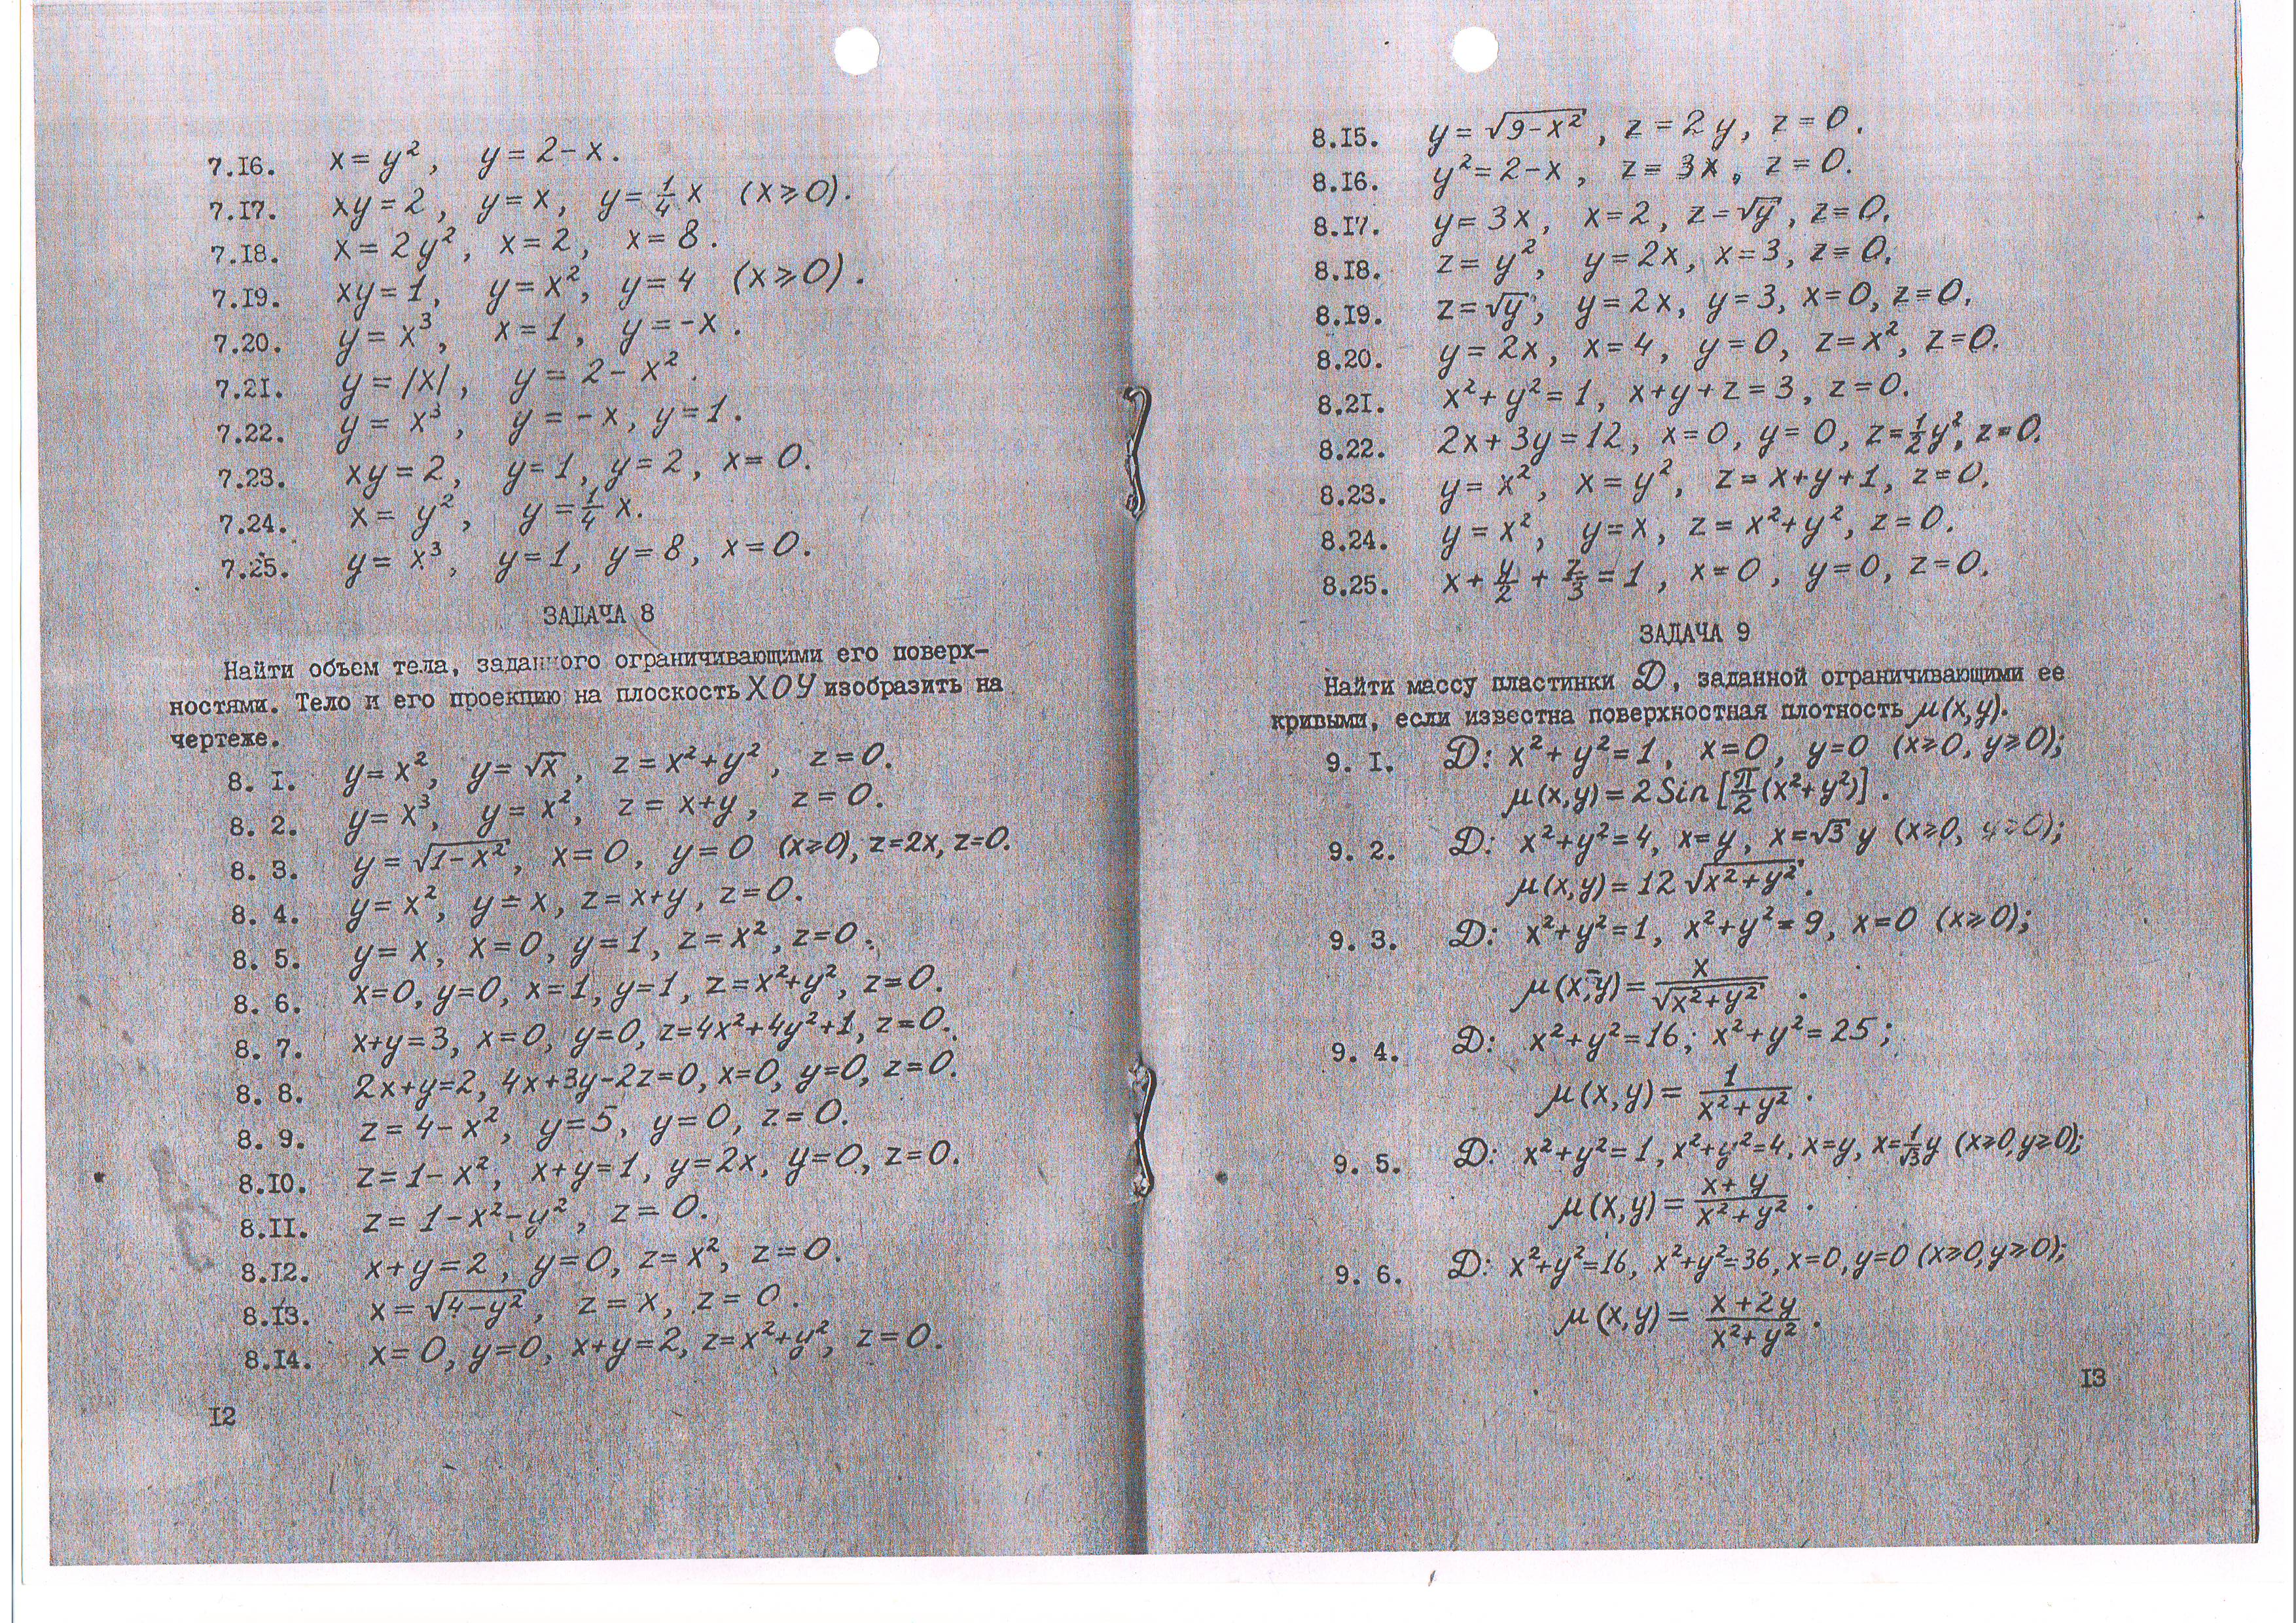 7.16. x = y², y = 2 − x.
7.17. xy = 2, y = x, y = 1/4 x (x ≥ 0).
7.18. x = 2y², x = 2, x = 8.
7.19. xy = 1, y = x², y = 4 (x ≥ 0).
7.20. y = x³, x = 1, y = −x.
7.21. y = |x|, y = 2 − x².
7.22. y = x³, y = −x, y = 1.
7.23. xy = 2, y = 1, y = 2, x = 0.
7.24. x = y², y = 1/4 x.
7.25. y = x³, y = 1, y = 8, x = 0.
ЗАДАЧА 8
Найти объем тела, заданного ограничивающими его поверх-
ностями. Тело и его проекцию на плоскость XOY изобразить на
чертеже.
8. 1. y = x², y = √x, z = x² + y², z = 0.
8. 2. y = x³, y = x², z = x + y, z = 0.
8. 3. y = √(1 − x²), x = 0, y = 0 (x ≥ 0), z = 2x, z = 0.
8. 4. y = x², y = x, z = x + y, z = 0.
8. 5. y = x, x = 0, y = 1, z = x², z = 0.
8. 6. x = 0, y = 0, x = 1, y = 1, z = x² + y², z = 0.
8. 7. x + y = 3, x = 0, y = 0, z = 4x² + 4y² + 1, z = 0.
8. 8. 2x + y = 2, 4x + 3y − 2z = 0, x = 0, y = 0, z = 0.
8. 9. z = 4 − x², y = 5, y = 0, z = 0.
8.10. z = 1 − x², x + y = 1, y = 2x, y = 0, z = 0.
8.11. z = 1 − x² − y², z = 0.
8.12. x + y = 2, y = 0, z = x², z = 0.
8.13. x = √(4 − y²), z = x, z = 0.
8.14. x = 0, y = 0, x + y = 2, z = x² + y², z = 0.
12
8.15. y = √(9 − x²), z = 2y, z = 0.
8.16. y² = 2 − x, z = 3x, z = 0.
8.17. y = 3x, x = 2, z = √y, z = 0.
8.18. z = y², y = 2x, x = 3, z = 0.
8.19. z = √y, y = 2x, y = 3, x = 0, z = 0.
8.20. y = 2x, x = 4, y = 0, z = x², z = 0.
8.21. x² + y² = 1, x + y + z = 3, z = 0.
8.22. 2x + 3y = 12, x = 0, y = 0, z = 1/2 y², z = 0.
8.23. y = x², x = y², z = x + y + 1, z = 0.
8.24. y = x², y = x, z = x² + y², z = 0.
8.25. x + y/2 + z/3 = 1, x = 0, y = 0, z = 0.
ЗАДАЧА 9
Найти массу пластинки D, заданной ограничивающими ее
кривыми, если известна поверхностная плотность μ(x,y).
9. 1. D: x² + y² = 1, x = 0, y = 0 (x ≥ 0, y ≥ 0);
μ(x,y) = 2 Sin [π/2 (x² + y²)].
9. 2. D: x² + y² = 4, x = y, x = √3 y (x ≥ 0, y ≥ 0);
μ(x,y) = 12 √(x² + y²).
9. 3. D: x² + y² = 1, x² + y² = 9, x = 0 (x ≥ 0);
μ(x,y) = x/√(x² + y²).
9. 4. D: x² + y² = 16; x² + y² = 25;
μ(x,y) = 1/(x² + y²).
9. 5. D: x² + y² = 1, x² + y² = 4, x = y, x = 1/√3 y (x ≥ 0, y ≥ 0);
μ(x,y) = (x + y)/(x² + y²).
9. 6. D: x² + y² = 16, x² + y² = 36, x = 0, y = 0 (x ≥ 0, y ≥ 0);
μ(x,y) = (x + 2y)/(x² + y²).
13